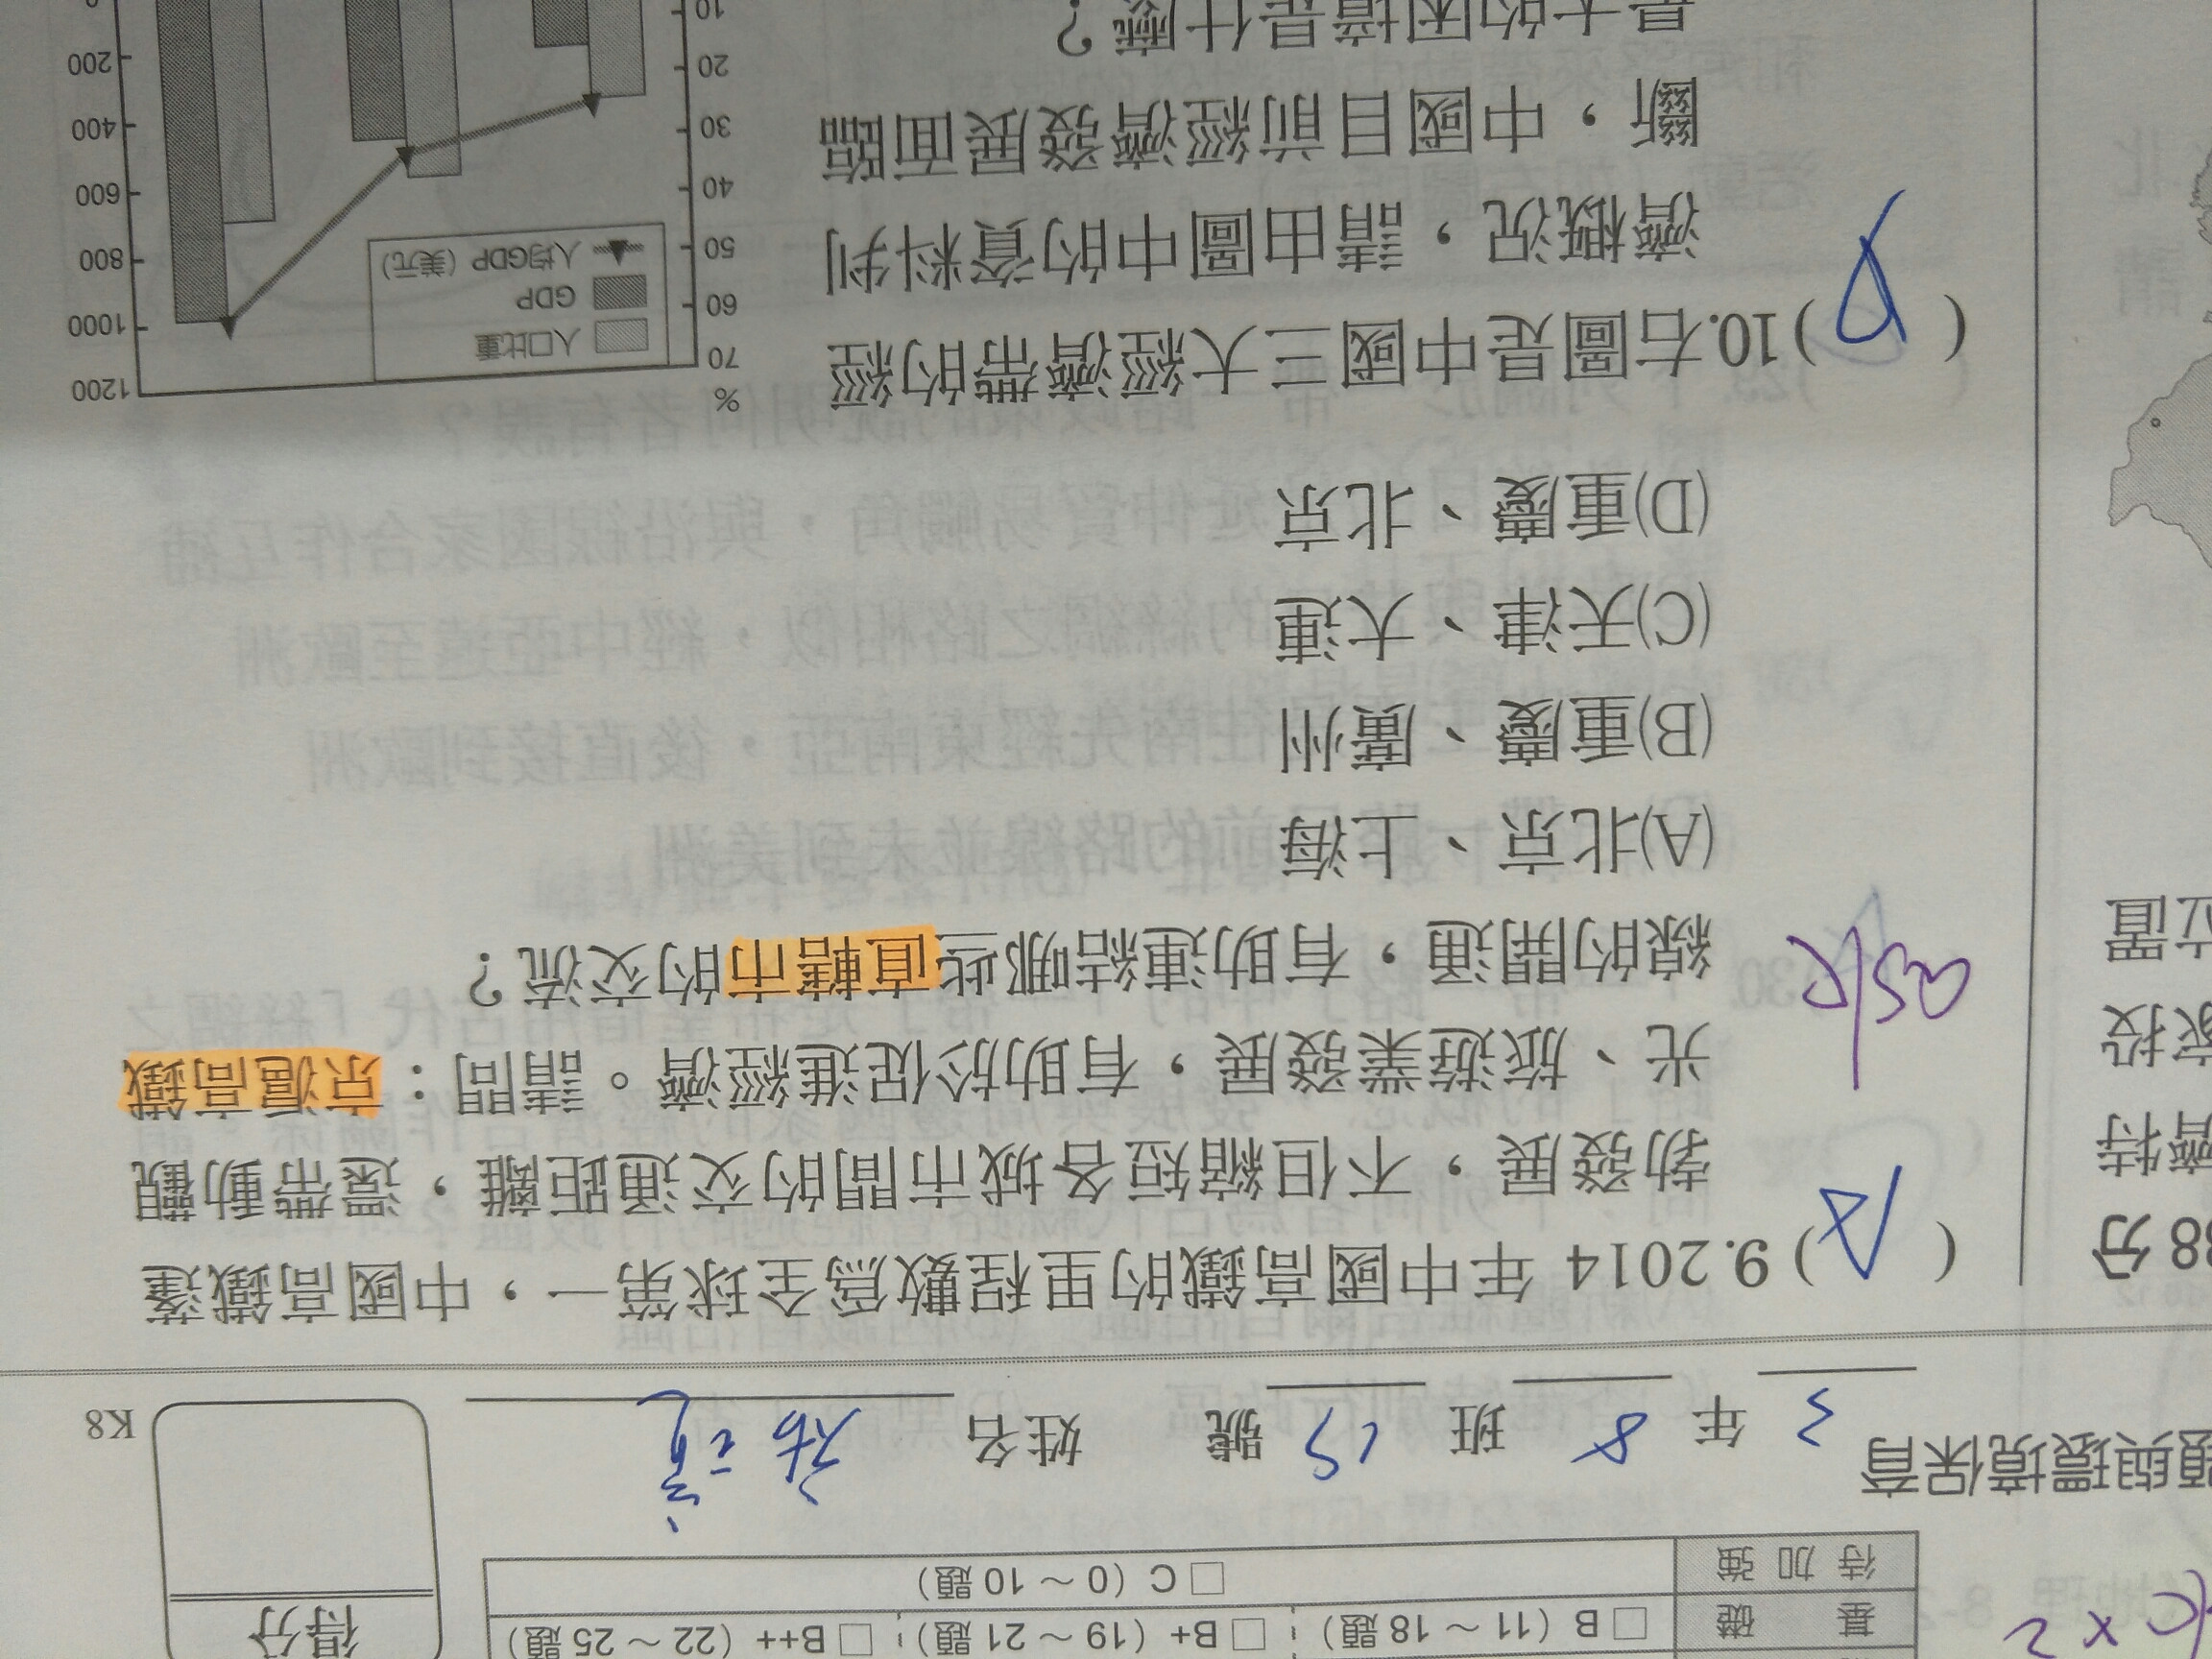 基礎 □B（11～18題） □B+（19～21題） □B++（22～25題）
待加強 □C（0～10題）
得分
題與環境保育 3 年 8 班 15 號 姓名
K8
(A) 9. 2014 年中國高鐵的里程數為全球第一，中國高鐵蓬
勃發展，不但縮短各城市間的交通距離，還帶動觀
光、旅遊業發展，有助於促進經濟。請問：京滬高鐵
線的開通，有助連結哪些直轄市的交流？
ask
(A)北京、上海
(B)重慶、廣州
(C)天津、大連
(D)重慶、北京
( ) 10. 右圖是中國三大經濟帶的經
濟概況，請由圖中的資料判
斷，中國目前經濟發展面臨
最大的困境是什麼？
%
70
60
50
40
30
20
10
1200
1000
800
600
400
200
0
人口比重
GDP
人均GDP（美元）
38 分
濟特
家投
位置